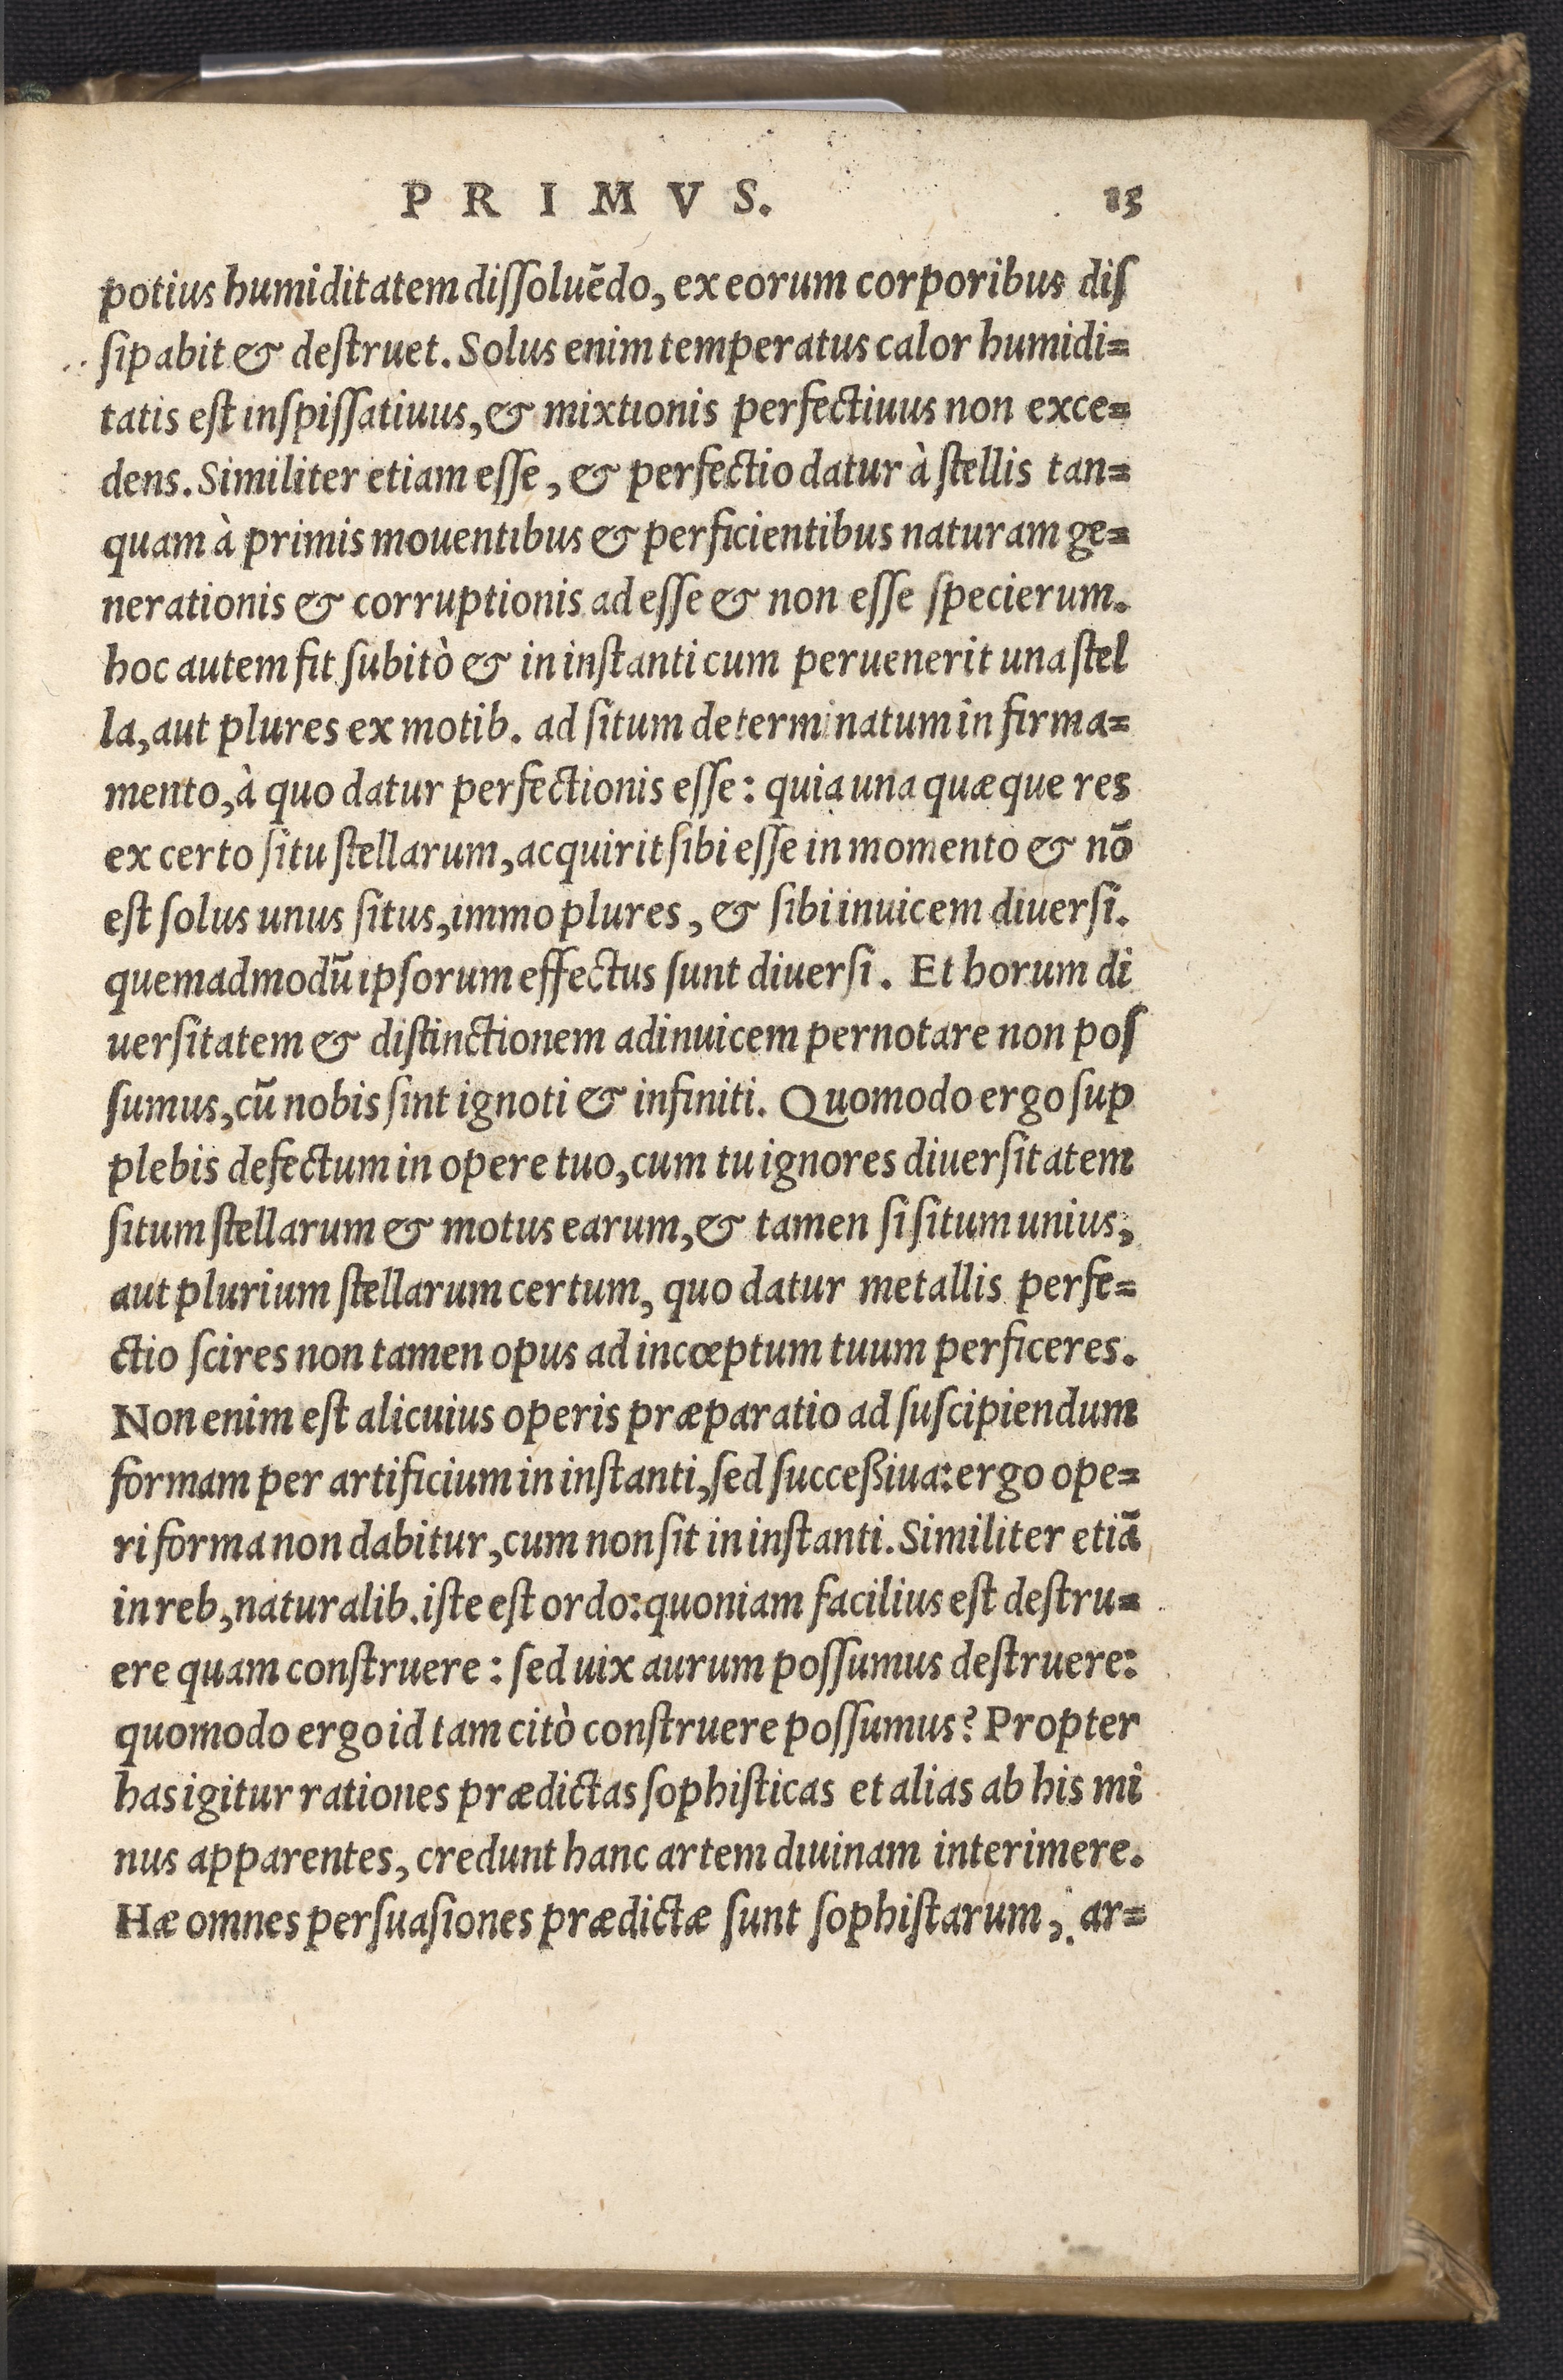 PRIMVS. 15
potius humiditatem diſſoluẽdo, ex eorum corporibus diſ
ſipabit & deſtruet. Solus enim temperatus calor humidi=
tatis eſt inſpiſſatiuus, & mixtionis perfectiuus non exce=
dens. Similiter etiam eſſe, & perfectio datur à ſtellis tan=
quam à primis mouentibus & perficientibus naturam ge=
nerationis & corruptionis ad eſſe & non eſſe ſpecierum.
hoc autem fit ſubitò & in inſtanti cum peruenerit una ſtel
la, aut plures ex motib. ad ſitum determinatum in firma=
mento, à quo datur perfectionis eſſe: quia una quæque res
ex certo ſitu ſtellarum, acquirit ſibi eſſe in momento & nõ
eſt ſolus unus ſitus, immo plures, & ſibi inuicem diuerſi.
quemadmodũ ipſorum effectus ſunt diuerſi. Et horum di
uerſitatem & diſtinctionem adinuicem pernotare non poſ
ſumus, cũ nobis ſint ignoti & infiniti. Quomodo ergo ſup
plebis defectum in opere tuo, cum tu ignores diuerſitatem
ſitum ſtellarum & motus earum, & tamen ſi ſitum unius,
aut plurium ſtellarum certum, quo datur metallis perfe=
ctio ſcires non tamen opus ad incœptum tuum perficeres.
Non enim eſt alicuius operis præparatio ad ſuſcipiendum
formam per artificium in inſtanti, ſed ſucceßiua: ergo ope=
ri forma non dabitur, cum non ſit in inſtanti. Similiter etiã
in reb, naturalib. iſte eſt ordo: quoniam facilius eſt deſtru=
ere quam conſtruere: ſed uix aurum poſſumus deſtruere:
quomodo ergo id tam citò conſtruere poſſumus? Propter
has igitur rationes prædictas ſophiſticas et alias ab his mi
nus apparentes, credunt hanc artem diuinam interimere.
Hæ omnes perſuaſiones prædictæ ſunt ſophiſtarum, ar=